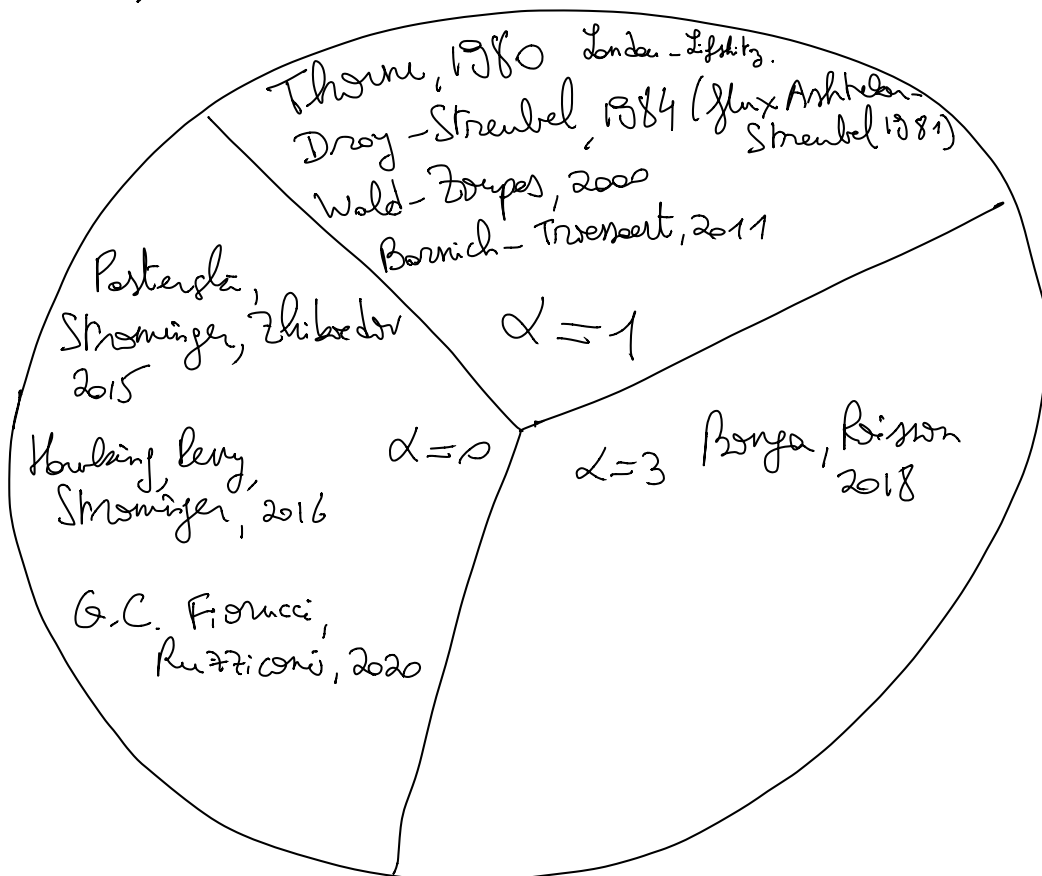 Thorne, 1980 Landau-Lifshitz.
Dray-Streubel, 1984 (flux Ashtekar-
Streubel 1981)
Wald-Zoupas, 2000
Barnich-Troessaert, 2011
α=1
Pasterski,
Strominger, Zhiboedov
2015
Hawking, Perry,
Strominger, 2016
α=0
G.C. Fiorucci,
Ruzziconi, 2020
α=3 Bonga, Poisson
2018